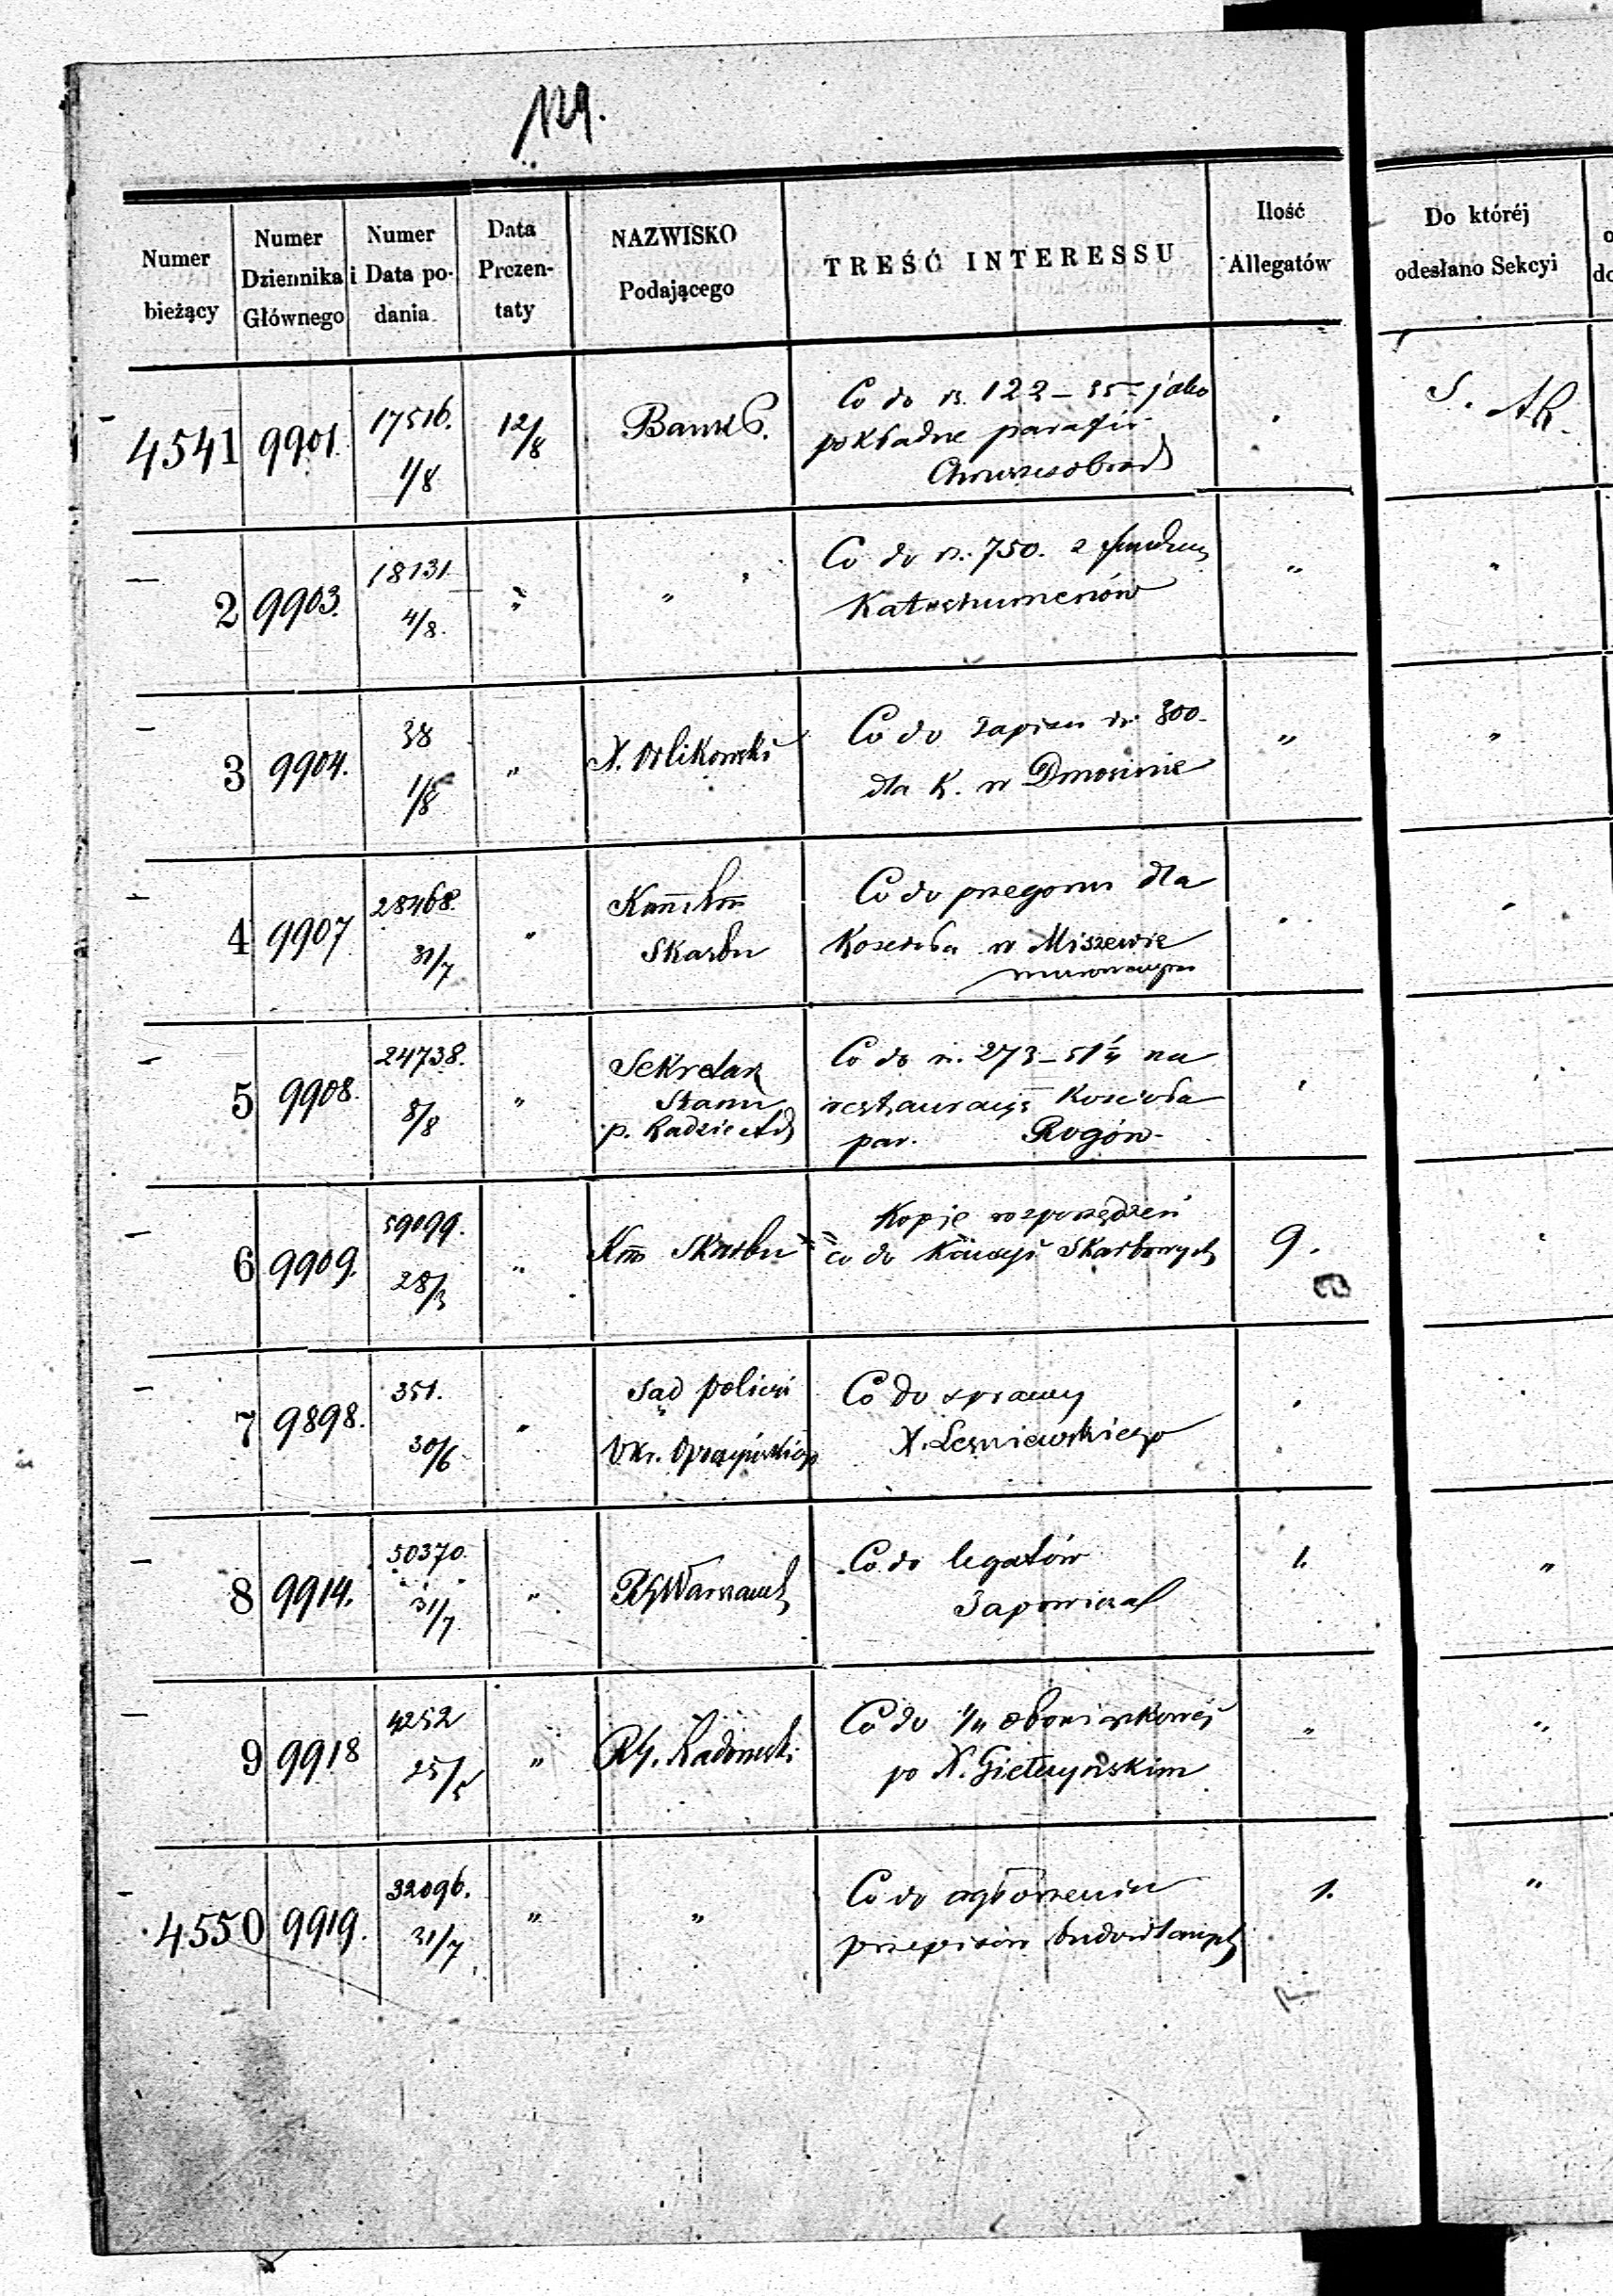 129.
Numer bieżący
Numer Dziennika Głównego
Numer i Data podania
Data Prezentaty
NAZWISKO Podającego
TREŚĆ INTERESSU
Ilość Allegatów
Do któréj odesłano Sekcyi
4541 9901. 17516. 1/8 12/8 Bank P. Co do rs. 122 – 35 – jako
pokładne parafii
Chruszczobród
S.
2 9903. 18131. 4/8. " " Co do rs. 750. z funduszu
Katechumenów " "
3 9904. 38 1/8 " X. Orlikowski Co do zapisu rs. 300.
dla K. w Dmosinie " "
4 9907 28468. 31/7 " Skarbu Co do przegonu dla
Kościoła w Miszewie
murowanym
5 9908. 24738. 8/8 " Sekretarz
Stanu
p. Co do rs. 273 – 51 1/4 na
restauracyę Kościoła
par. Rogów
6 9909. 59099. 28/3 " Kom Skarbu Kopje rozporządzeń
co do Kaucyi Skarbowych 9.
7 9898. 351. 30/6 " Sąd policyi
Okr. Opoczyńskiego Co do sprawy
X. Leśniewskiego
8 9914. 50370. 31/7 " RG Warszawski Co do legatów
1. "
9 9918 4252 25/5 " RG. Radomski Co do
po X. Giełczyńskim " "
4550 9919. 32096. 31/7 " " Co do ogłoszenia
przepisów budowlanych 1. "